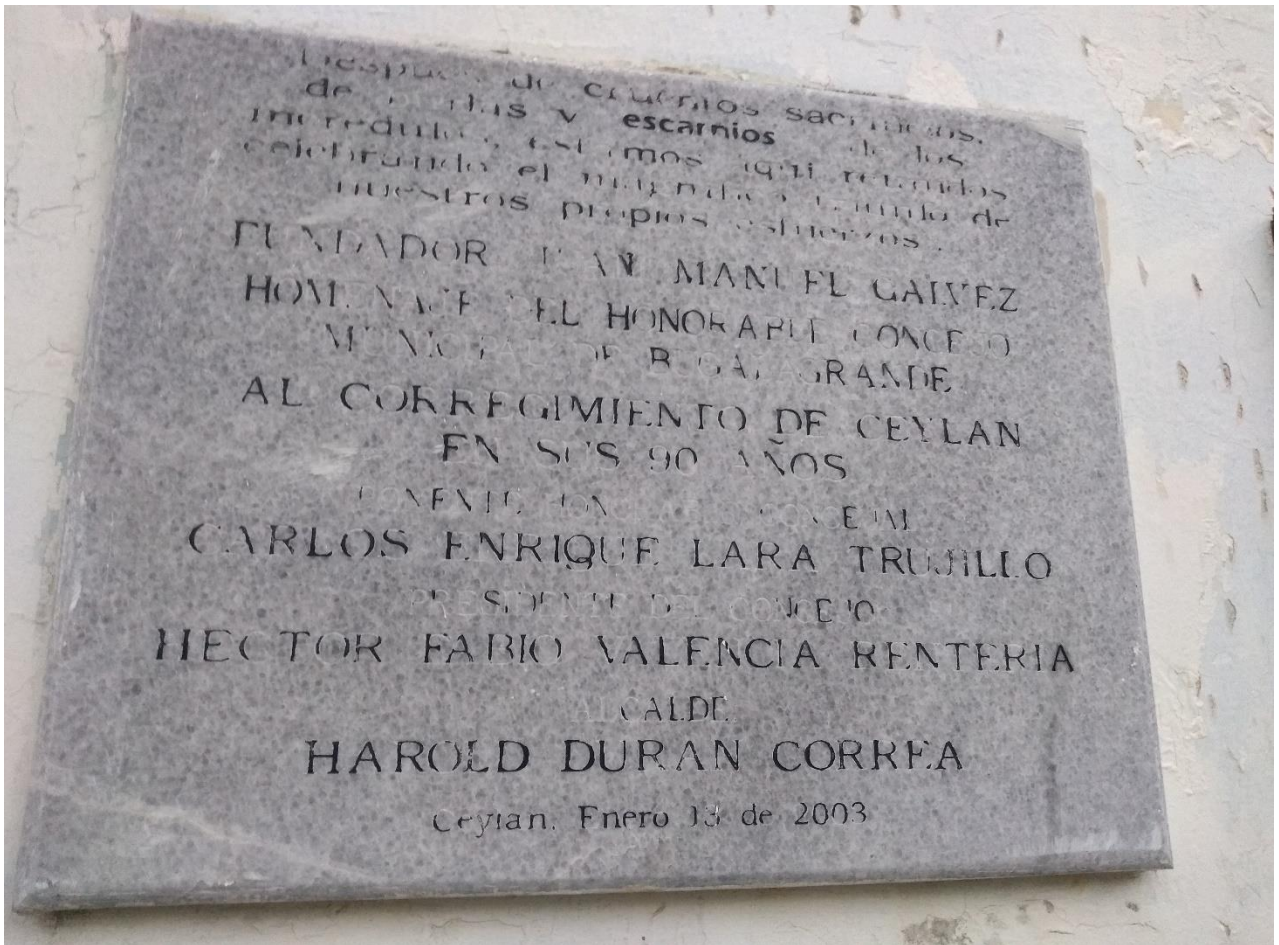 Después de cruentos sacrificios,
de y escarnios de los
incredulos estamos aqui reunidos
celebrando el magno triunfo de
nuestros propios esfuerzos.
FUNDADOR JUAN MANUEL GALVEZ
HOMENAJE DEL HONORABLE CONCEJO
MUNICIPAL DE BUGALAGRANDE
AL CORREGIMIENTO DE CEYLAN
EN SUS 90 AÑOS
PONENTE HONORABLE CONCEJAL
CARLOS ENRIQUE LARA TRUJILLO
PRESIDENTE DEL CONCEJO
HECTOR FABIO VALENCIA RENTERIA
ALCALDE
HAROLD DURAN CORREA
Ceylan, Enero 13 de 2003